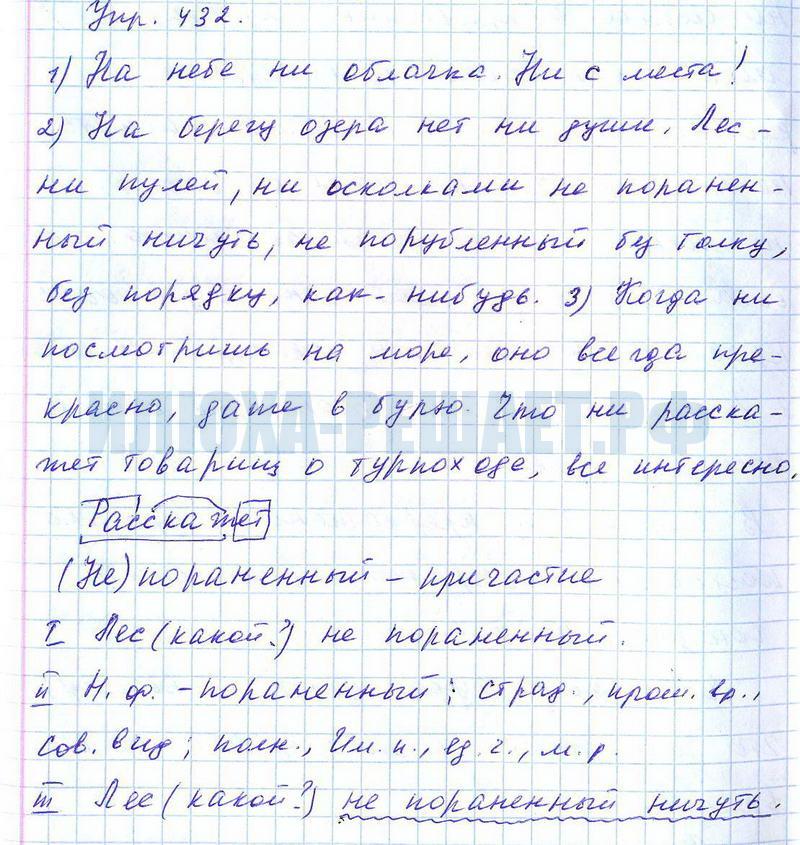 Упр. 432.
1) На небе ни облачка. Ни с места!
2) На берегу озера нет ни души. Лес -
ни пулей, ни осколками не поранен-
ный ничуть, не порубленный без толку,
без порядку, как-нибудь. 3) Когда ни
посмотришь на море, оно всегда пре-
красно, даже в бурю. Что ни расска-
ИЛЮХА-РЕШАЕТ.РФ
жет товарищ о турпоходе, все интересно.
Расскажет
(Не) пораненный - причастие
I Лес (какой?) не пораненный.
II Н. ф. - пораненный; страд., прош. вр.,
сов. вид; полн., Им. п., ед. ч., м. р.
III Лес (какой?) не пораненный ничуть.